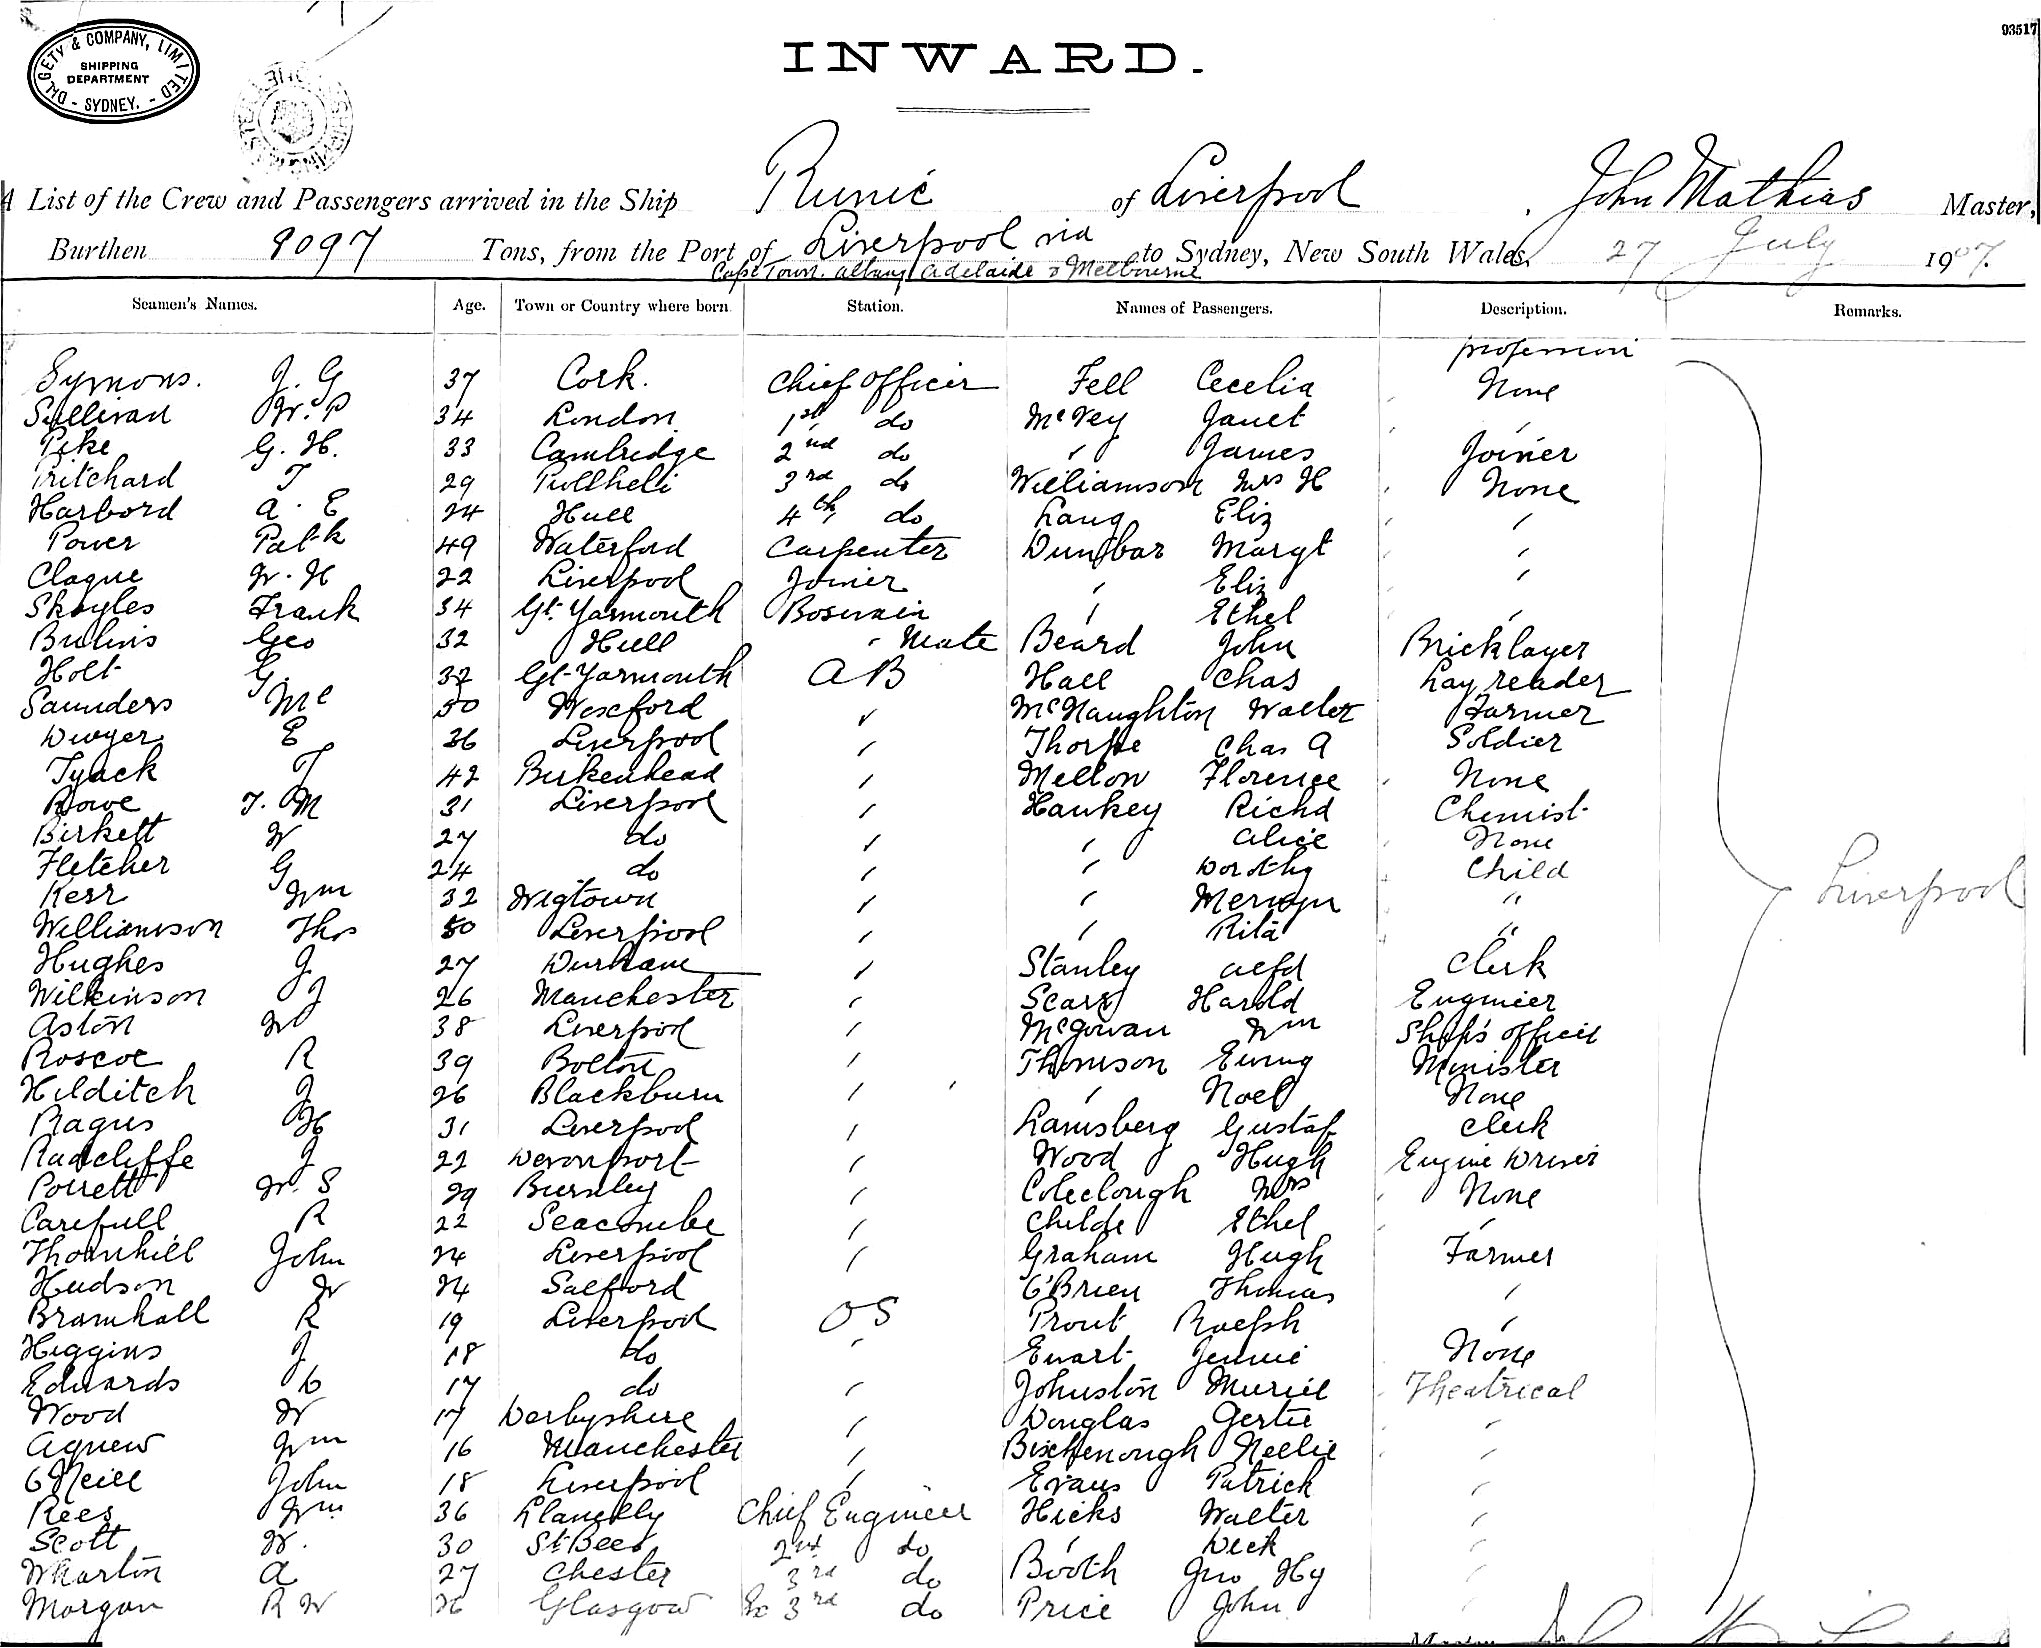 DALGETY & COMPANY, LIMITED
SHIPPING
DEPARTMENT
- SYDNEY. -
93517
INWARD.
A List of the Crew and Passengers arrived in the Ship Runic of Liverpool, John Mathias Master,
Burthen 9097 Tons, from the Port of Liverpool via to Sydney, New South Wales, 27 July 1907.
Cape Town. Albany Adelaide & Melbourne
Seamen's Names. Age. Town or Country where born Station. Names of Passengers. Description. Remarks.
profession
Symons. J. G 37 Cork. Chief Officer Fell Cecelia None
Sullivan W. P 34 London 1st do McVey Janet "
Pike G. H. 33 Cambridge 2nd do " James Joiner
Pritchard T 29 Pwllheli 3rd do Williamson Mrs H None
Harbord A. E 24 Hull 4th do Lang Eliz "
Power Patk 49 Waterford Carpenter Dunbar Margt "
Clague W. H 22 Liverpool Joiner " Eliz "
Skoyles Frank 34 Gt. Yarmouth Boswain " Ethel "
Geo 32 Hull " Mate Beard John Bricklayer
Holt G. 32 Gt Yarmouth AB Hall Chas Lay reader
Saunders Mc 50 Wexford " McNaughton Walter Farmer
Dwyer E 36 Liverpool " Thorpe Chas A Soldier
Tyack T 42 Birkenhead " Mellon Florence None
Rowe T. M 31 Liverpool " Hankey Richd Chemist
Birkett W 27 do " " Alice None
Fletcher G 24 do " " Dorothy Child
Kerr Wm 32 Wigtown " " Mervyn "
Williamson Thos 50 Liverpool " " Rita " Liverpool
Hughes J 27 Durham " Stanley Alfd Clerk
Wilkinson J 26 Manchester " Harold Engineer
Aston W 38 Liverpool " McGowan Wm Ship's Officer
Roscoe R 39 Bolton " Thomson Ewing Minister
Hilditch J 26 Blackburn " " Noel None
Ragus H 31 Liverpool " Lamsberg Gustaf Clerk
Radcliffe J 22 Devonport " Wood Hugh Engine Driver
Porrett W. S 29 Burnley " Coleclough Mrs None
Carefull R 22 Seacombe " Childe Ethel "
Thornhill John 24 Liverpool " Graham Hugh Farmer
Hudson W 24 Salford O'Brien Thomas "
Bramhall R 19 Liverpool OS Prout Ralph "
Higgins J 18 do " Ewart Jennie None
Edwards 17 do " Johnston Muriel Theatrical
Wood W 17 Derbyshire " Douglas Gertie "
Agnew Wm 16 Manchester " Nellie "
O'Neill John 18 Liverpool " Evans Patrick "
Rees Wm 36 Llanelly Chief Engineer Hicks Walter "
Scott W. 30 St Bees 2nd do " Dick "
Wharton A 27 Chester 3rd do Booth Jno Hy "
Morgan R W 26 Glasgow Ex 3rd do Price John "